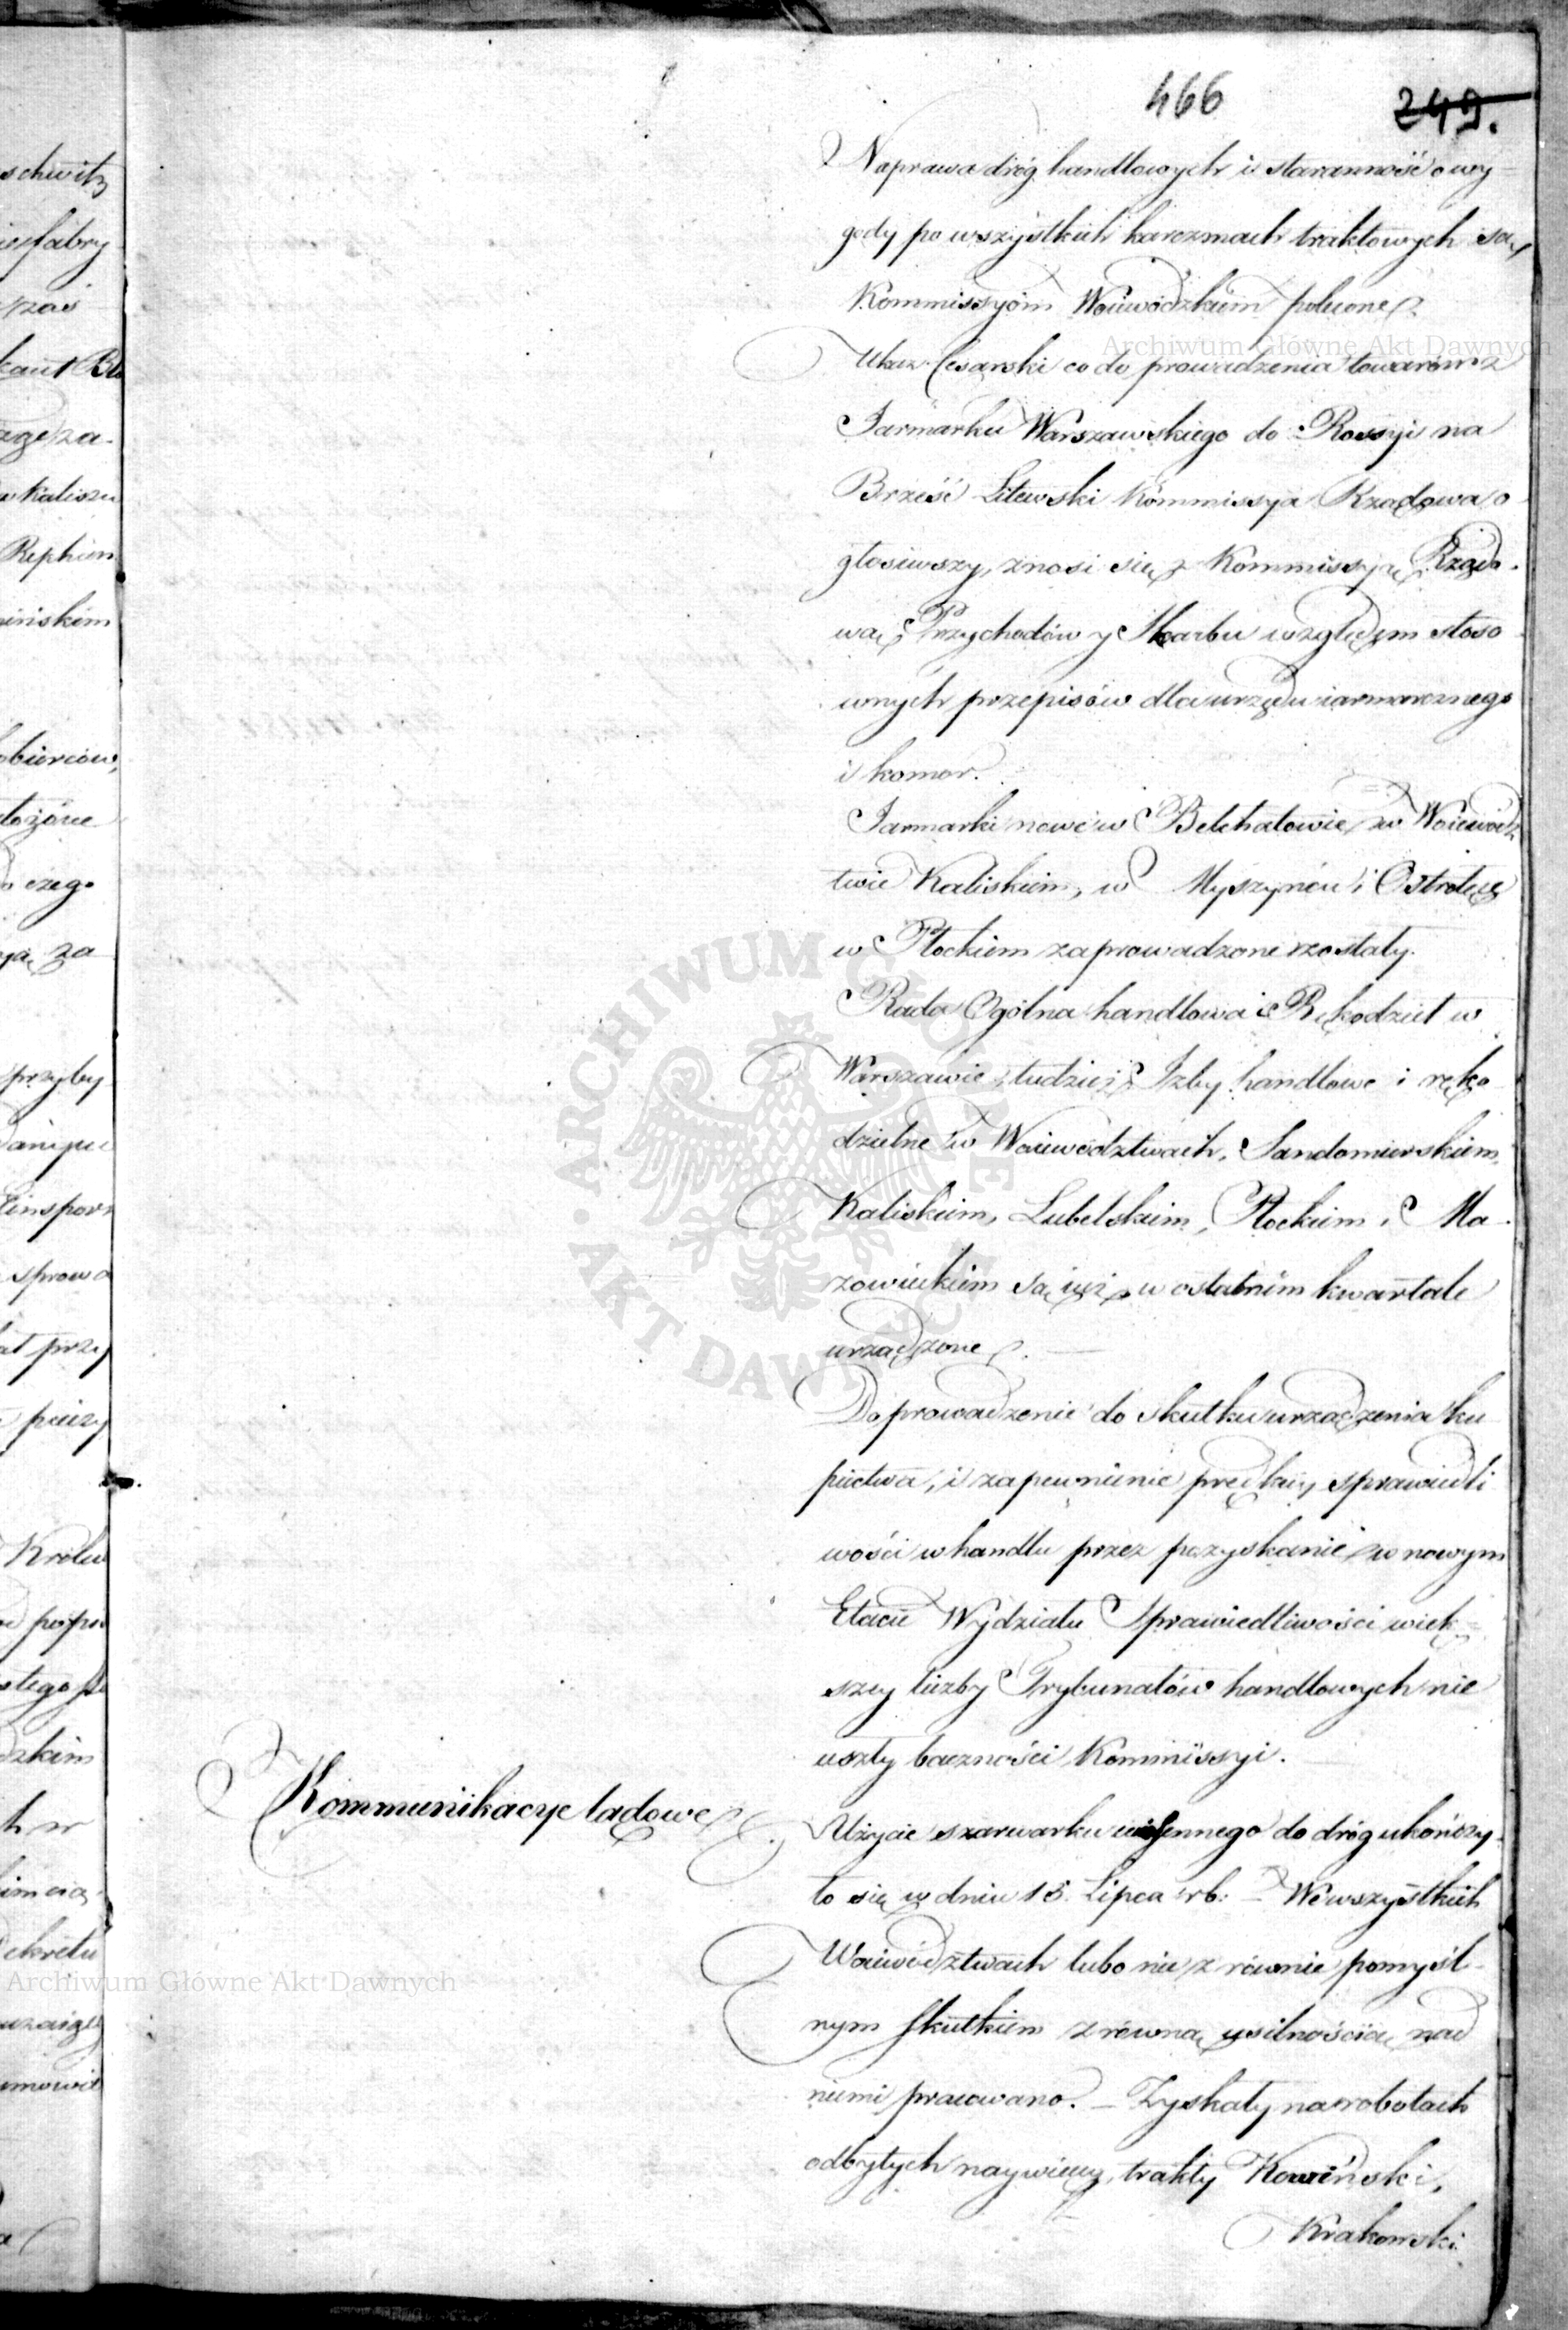 466
249.
Naprawa dróg handlowych i staranność o wy-
gody po wszystkich karczmach traktowych są
Kommissyom Woiewódzkim polecone.
Ukaz Cesarski co do prowadzenia towarów z
Jarmarku Warszawskiego do Rossyi na
Brześć Litewski Kommissya Rządowa o-
głosiwszy, znosi się z Kommissyą Rządo-
wą Przychodów y Skarbu względem stoso-
wnych przepisów dla urzędu iarmarcznego
i komor.
Jarmarki nowe w Bełchatowie w Woiewódz
twie Kaliskiem, w Myszyńcu i Ostrołęce
w Płockiem zaprowadzone zostały.
Rada Ogólna handlowa i Rękodzieł w
Warszawie, tudzież Izby handlowe i ręko
dzielne w Woiewództwach, Sandomierskiem,
Kaliskiem, Lubelskiem, Płockiem i Ma-
zowieckiem są iuż w ostatnim kwartale
urządzone. —
Doprowadzenie do skutku urządzenia ku
piectwa, i zapewnienie prędkiey sprawiedli
wości w handlu przez pozyskanie w nowym
Etacie Wydziału Sprawiedliwości więk-
szey liczby Trybunałów handlowych nie
uszły baczności Kommissyi.
Kommunikacye lądowe.
Użycie szarwarku wiosennego do dróg ukończy-
ło się w dniu 15. Lipca r b: — We wszystkich
Woiewództwach lubo nie z równie pomyśl-
nym skutkiem z równą usilnością nad
niemi pracowano. — Zyskały na robotach
odbytych naywięcey trakty Kowieński,
Krakowski
schwitz
fabry
zaś
za-
Kaliszu
ińskim
czego
za
przyby
sprowa
przy
Królew
dzkim
Dekretu
Archiwum Główne Akt Dawnych
Archiwum Główne Akt Dawnych
ARCHIWUM GŁÓWNE AKT DAWNYCH